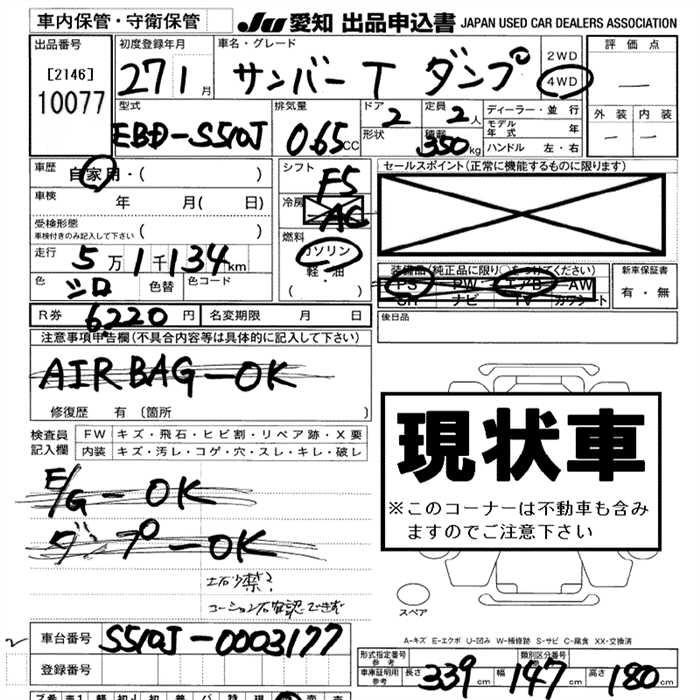 車内保管・守衛保管 JU 愛知 出品申込書 JAPAN USED CAR DEALERS ASSOCIATION
出品番号 初度登録年月 車名・グレード 2WD 評価点
[2146] 27 1月 サンバーT ダンプ 4WD —
10077 型式 排気量 ドア 定員 ディーラー・並行 外装 内装
EBD-S510J 0.65CC 2 2人 モデル年式 年 — —
形状 積載 350kg ハンドル 左・右
車歴 自家用・( ) シフト F5 セールスポイント(正常に機能するものに限ります)
車検 年 月( 日) 冷房 AC
受検形態
車検付きのみ記入して下さい ( ) 燃料
走行 5万1千134km ガソリン 装備品(純正品に限り○をつけてください) 新車保証書
色 シロ 色替 色コード 軽・油 PS PW エアB AW 有・無
( ) SH ナビ TV カワシート
R券 6220円 名変期限 月 日 後日品
注意事項申告欄(不具合内容等は具体的に記入して下さい)
AIRBAG-OK
修復歴 有 (箇所 )
検査員 FW キズ・飛石・ヒビ割・リペア跡・X要
記入欄 内装 キズ・汚レ・コゲ・穴・スレ・キレ・破レ
E/G-OK
ダンプ-OK
現状車
※このコーナーは不動車も含み
ますのでご注意下さい
スペア
A-キズ E-エクボ U-凹み W-補修跡 S-サビ C-腐食 XX-交換済
2 車台番号 S510J-0003177
登録番号
形式指定番号 参考 類別区分番号 参考
車庫証明用 参考 長さ 339cm 幅 147cm 高さ 180cm